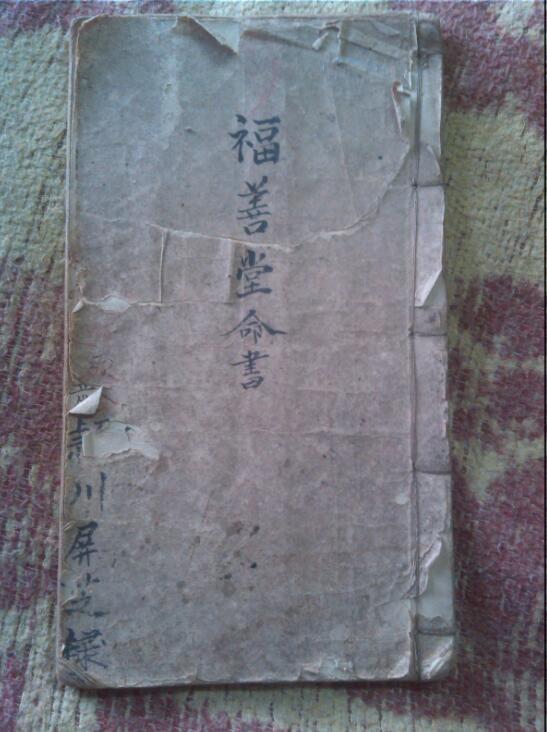 福善堂命書
川屏芝